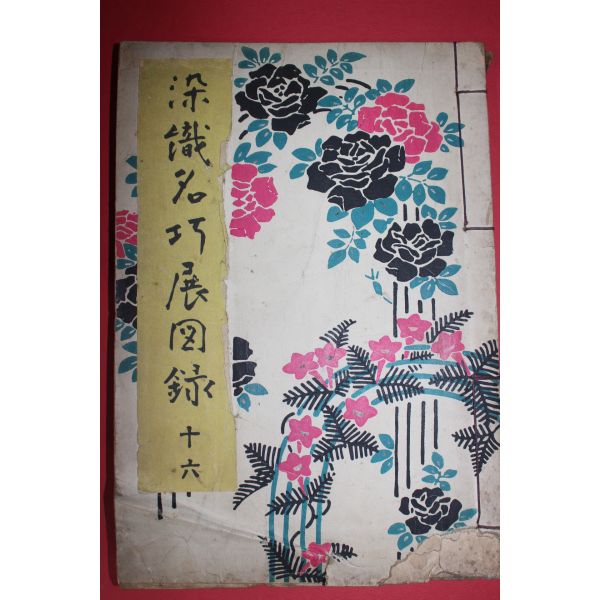 染織名巧展図録
十六